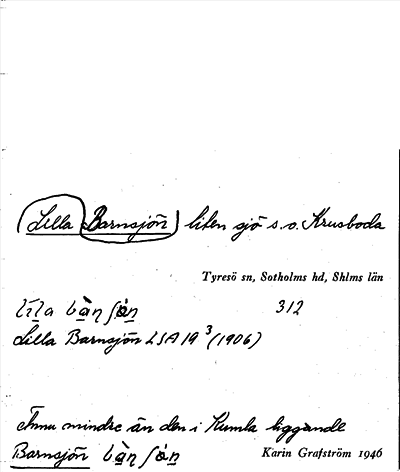 Lilla Barnsjön liten sjö s.o. Krusboda
Tyresö sn, Sotholms hd, Shlms län
312
Lilla Barnsjön LSA 19 3 (1906)
Ännu mindre än den i Kumla liggande
Barnsjön
Karin Grafström 1946